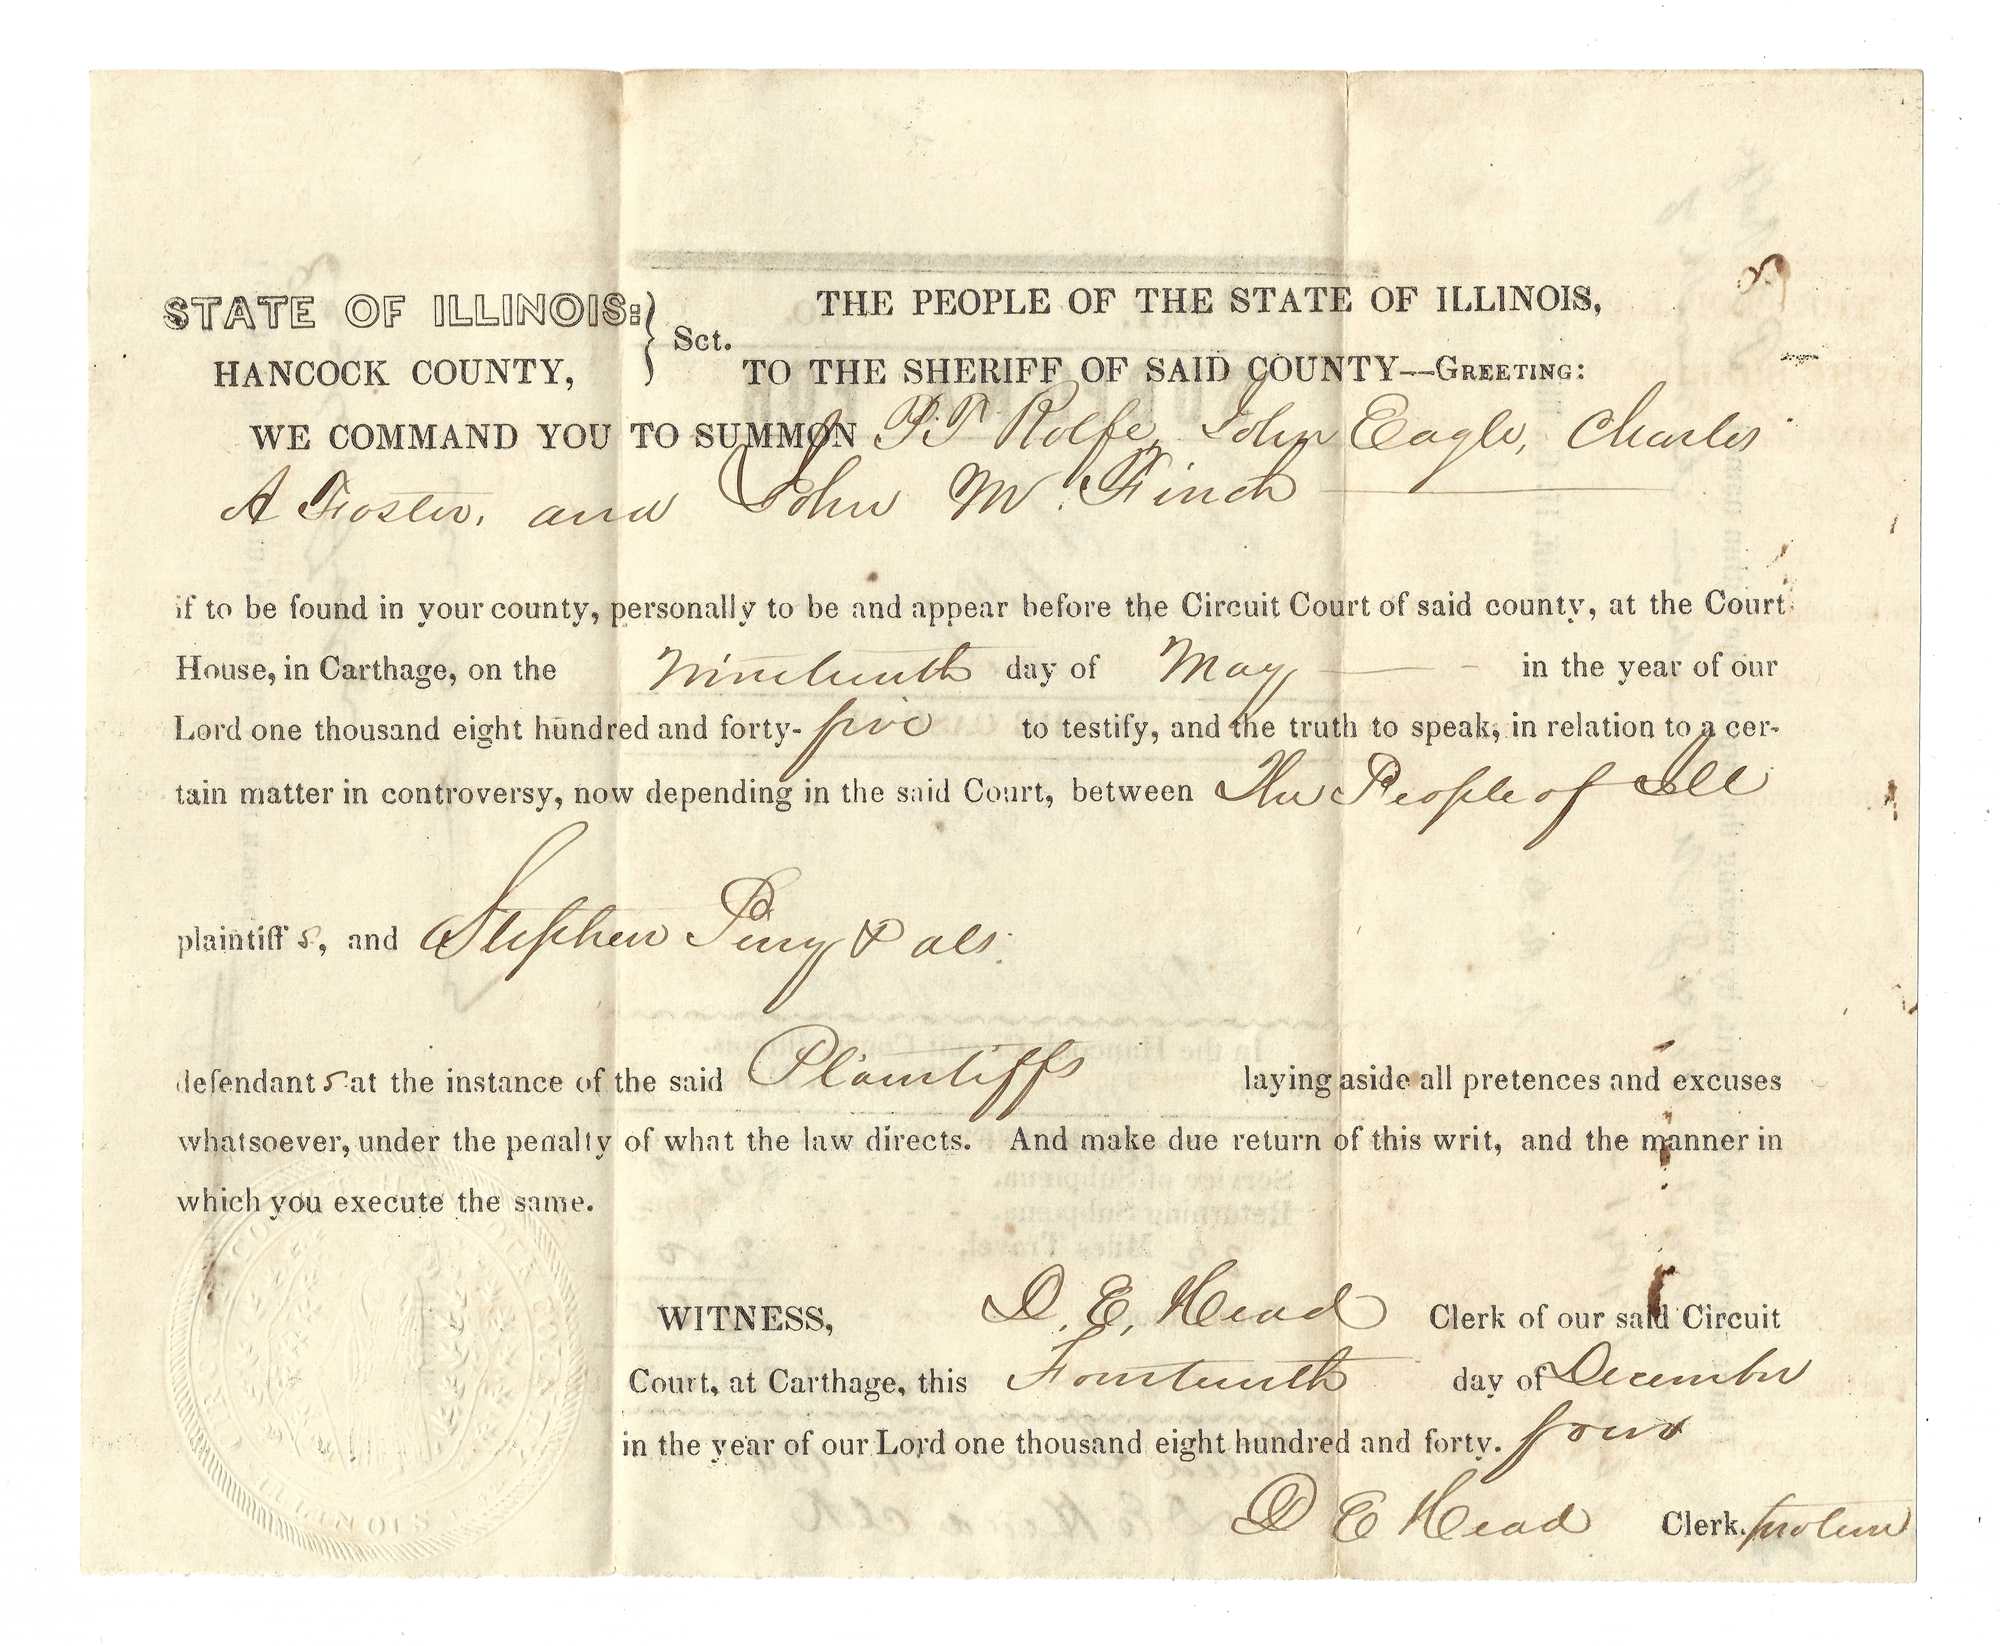 STATE OF ILLINOIS: } Sct. THE PEOPLE OF THE STATE OF ILLINOIS,
HANCOCK COUNTY, TO THE SHERIFF OF SAID COUNTY—GREETING:
WE COMMAND YOU TO SUMMON P. T Rolfe, John Eagle, Charles
A Foster, and John M. Finch
if to be found in your county, personally to be and appear before the Circuit Court of said county, at the Court
House, in Carthage, on the Nineteenth day of May in the year of our
Lord one thousand eight hundred and forty-five to testify, and the truth to speak, in relation to a cer-
tain matter in controversy, now depending in the said Court, between The People of Ill
plaintiff s, and Stephen Perry & als.
defendant s at the instance of the said Plaintiffs laying aside all pretences and excuses
whatsoever, under the penalty of what the law directs. And make due return of this writ, and the manner in
which you execute the same.
WITNESS, D. E. Head Clerk of our said Circuit
Court, at Carthage, this Fourteenth day of December
in the year of our Lord one thousand eight hundred and forty. four
D E Head Clerk. protem
ILLINOIS